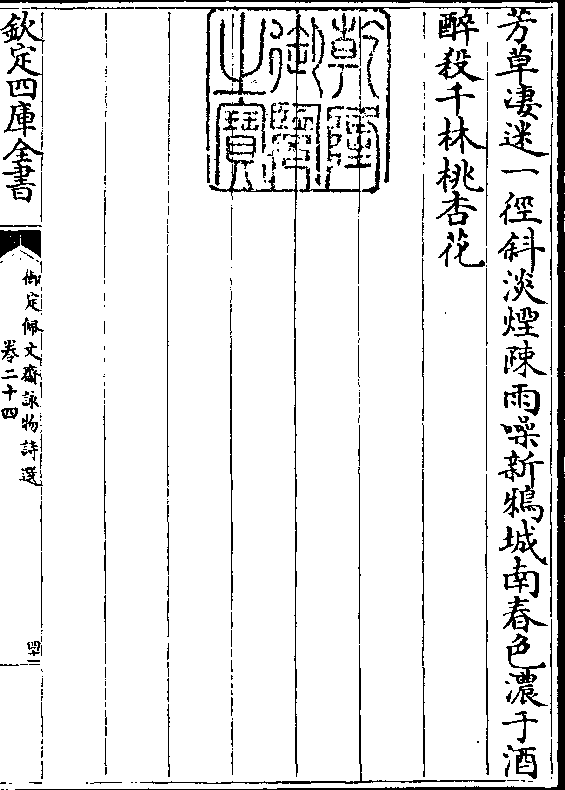 芳草淒迷一徑斜淡煙踈雨噪新鵶城南春色濃于酒
醉殺千林桃杏花
乾隆御覽之寶
欽定四庫全書
御定佩文齋詠物詩選
卷二十四